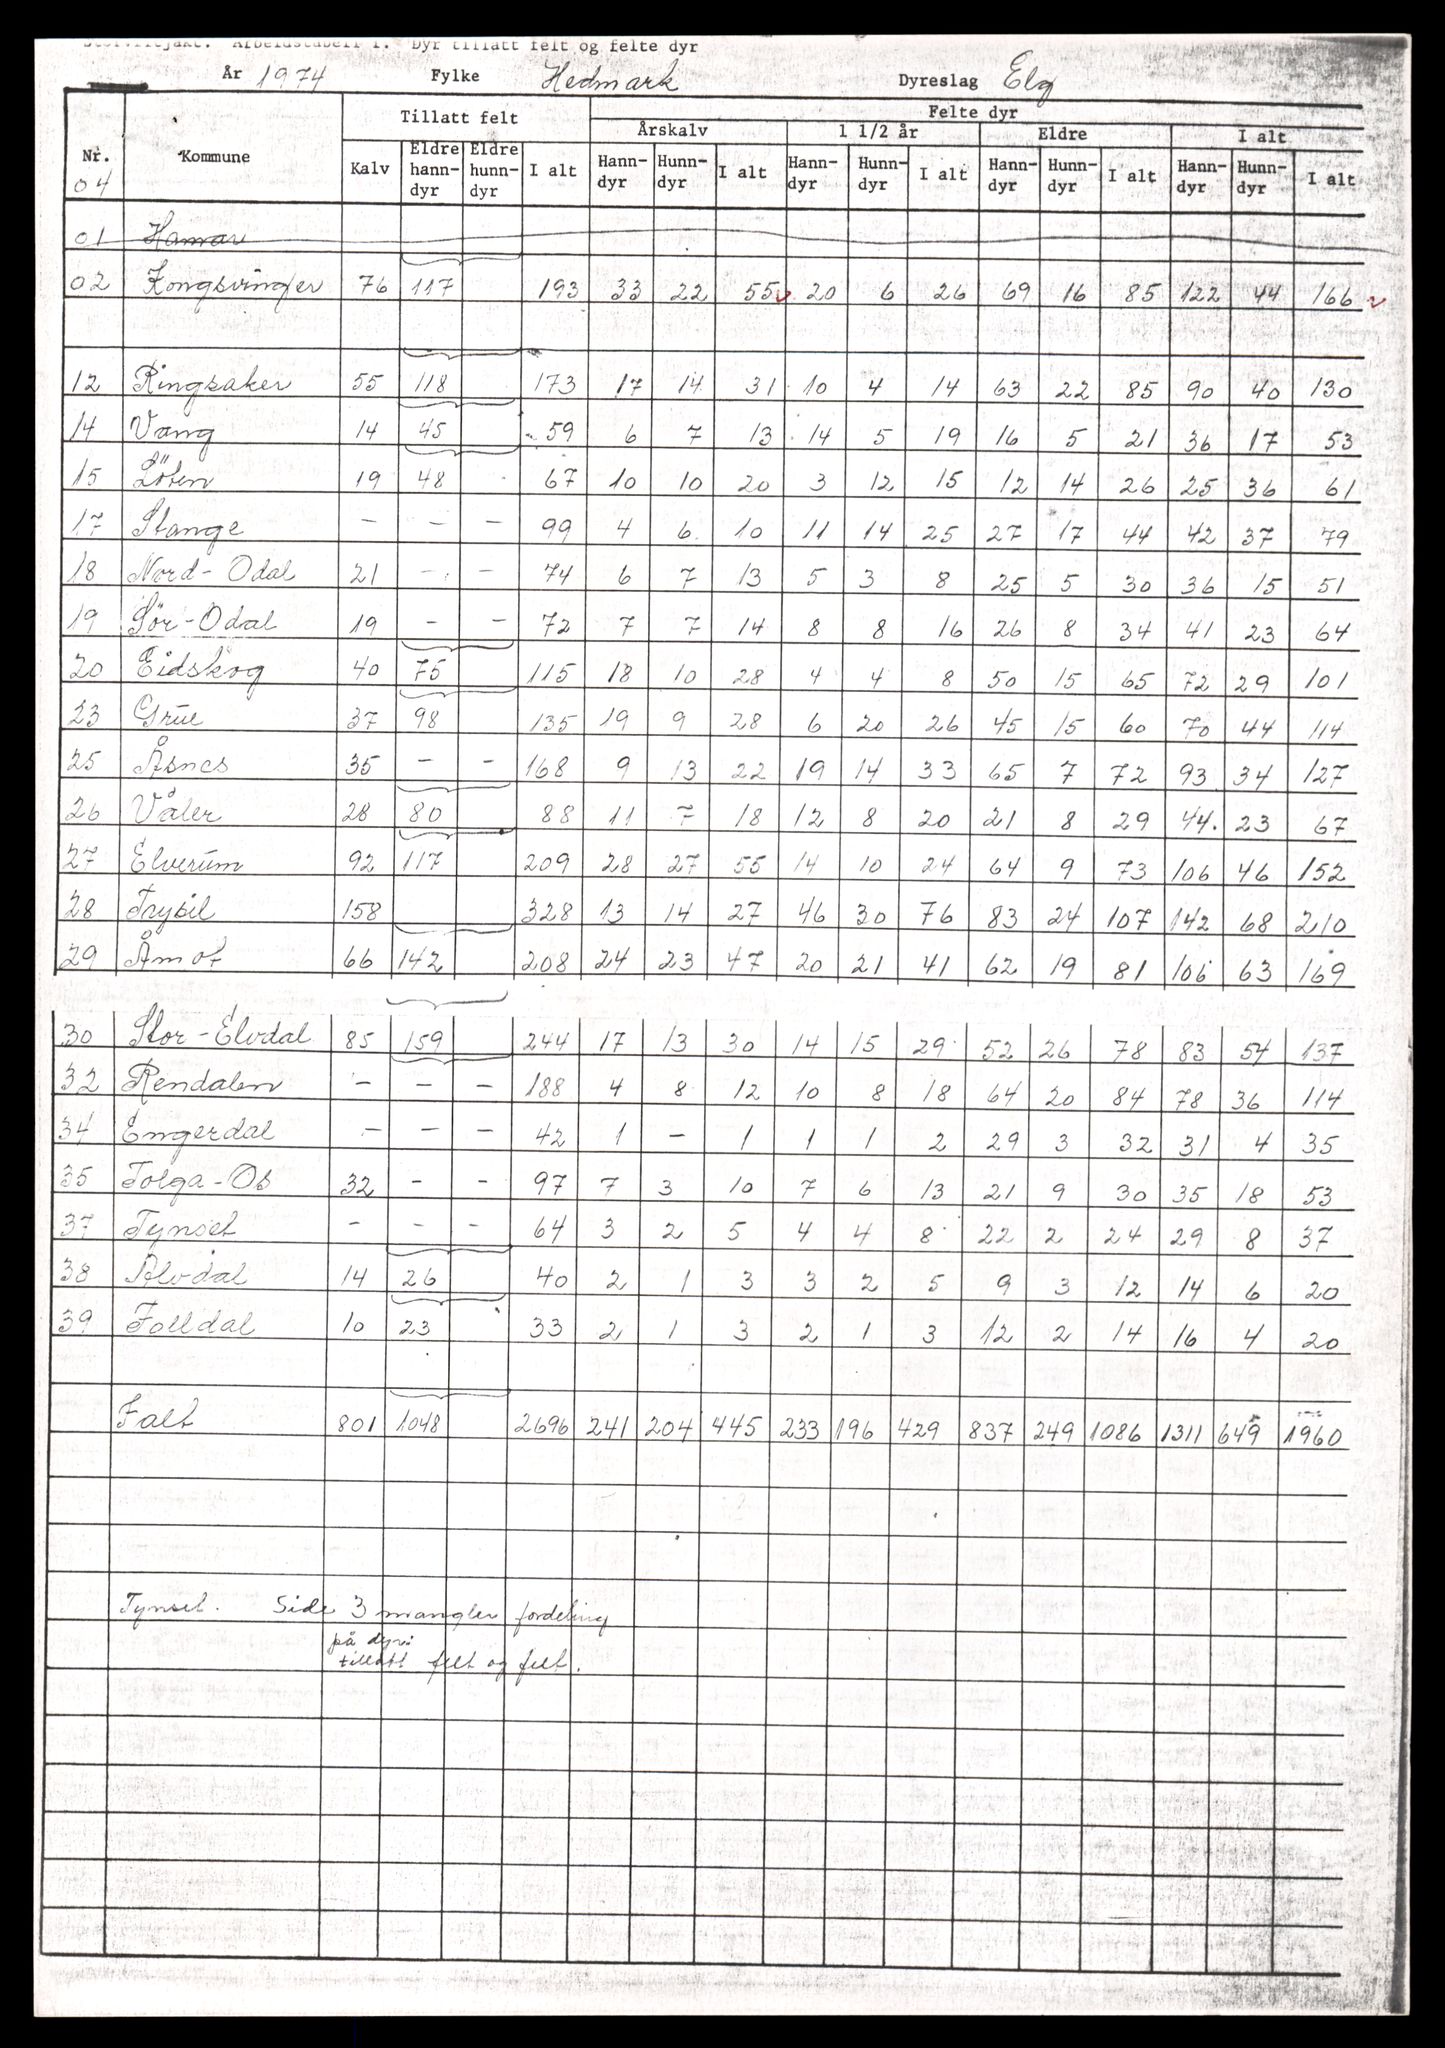 Storviltjakt. Arbeidstabell 1. Dyr tillatt felt og felte dyr
År 1974 Fylke Hedmark Dyreslag Elg
Tillatt felt Felte dyr
Årskalv 1 1/2 år Eldre I alt
Nr. 04 Kommune Kalv Eldre hann-dyr Eldre hunn-dyr I alt Hann-dyr Hunn-dyr I alt Hann-dyr Hunn-dyr I alt Hann-dyr Hunn-dyr I alt Hann-dyr Hunn-dyr I alt
01 Hamar
02 Kongsvinger 76 117 193 33 22 55 20 6 26 69 16 85 122 44 166
12 Ringsaker 55 118 173 17 14 31 10 4 14 63 22 85 90 40 130
14 Vang 14 45 59 6 7 13 14 5 19 16 5 21 36 17 53
15 Löten 19 48 67 10 10 20 3 12 15 12 14 26 25 36 61
17 Stange – – – 99 4 6 10 11 14 25 27 17 44 42 37 79
18 Nord-Odal 21 – – 74 6 7 13 5 3 8 25 5 30 36 15 51
19 Sör-Odal 19 – – 72 7 7 14 8 8 16 26 8 34 41 23 64
20 Eidskog 40 75 115 18 10 28 4 4 8 50 15 65 72 29 101
23 Grue 37 98 135 19 9 28 6 20 26 45 15 60 70 44 114
25 Åsnes 35 – – 168 9 13 22 19 14 33 65 7 72 93 34 127
26 Våler 28 80 88 11 7 18 12 8 20 21 8 29 44 23 67
27 Elverum 92 117 209 28 27 55 14 10 24 64 9 73 106 46 152
28 Trysil 158 328 13 14 27 46 30 76 83 24 107 142 68 210
29 Åmot 66 142 208 24 23 47 20 21 41 62 19 81 106 63 169
30 Stor-Elvdal 85 159 244 17 13 30 14 15 29 52 26 78 83 54 137
32 Rendalen – – – 188 4 8 12 10 8 18 64 20 84 78 36 114
34 Engerdal – – – 42 1 – 1 1 1 2 29 3 32 31 4 35
35 Tolga-Os 32 – – 97 7 3 10 7 6 13 21 9 30 35 18 53
37 Tynset – – – 64 3 2 5 4 4 8 22 2 24 29 8 37
38 Alvdal 14 26 40 2 1 3 3 2 5 9 3 12 14 6 20
39 Folldal 10 23 33 2 1 3 2 1 3 12 2 14 16 4 20
Ialt 801 1048 2696 241 204 445 233 196 429 837 249 1086 1311 649 1960
Tynset. Side 3 mangler fordeling
på dyr:
tillatt felt og felt.